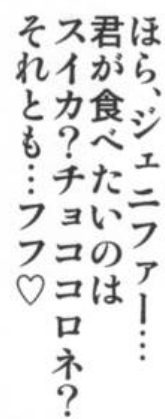 ほら、ジェニファー…
君が食べたいのは
スイカ？チョココロネ？
それとも…フフ♡